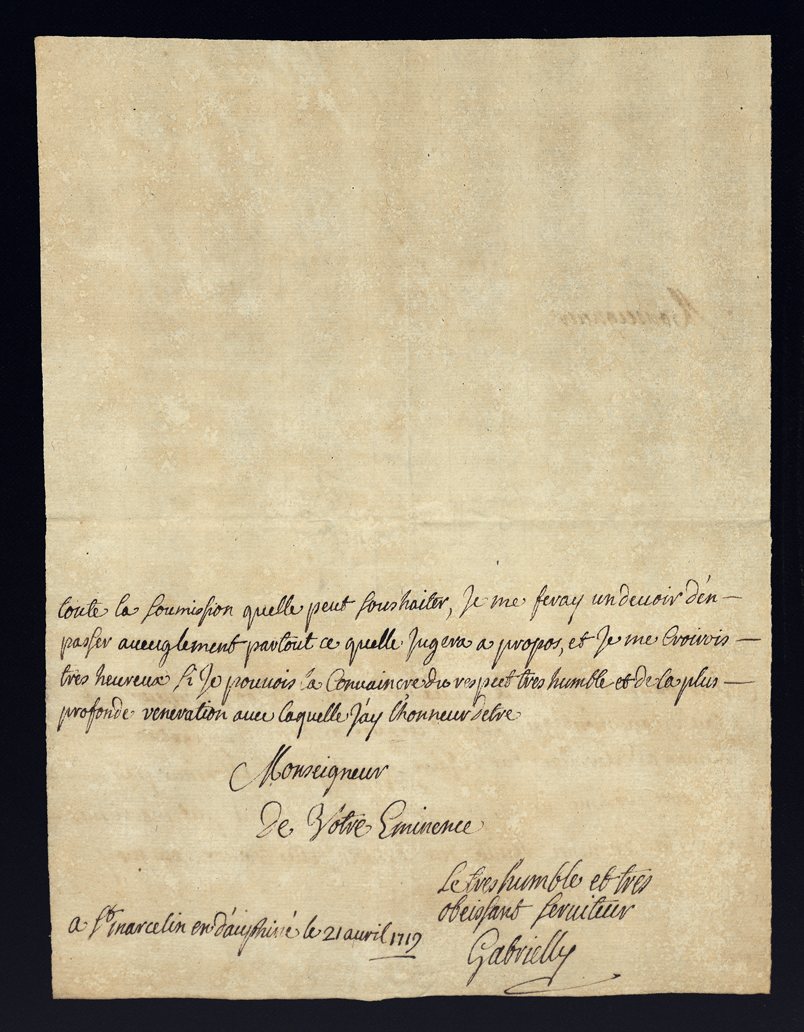 toute la soumission quelle peut souhaiter, Je me feray un devoir d'én —
passer aveuglement partout ce quelle Jugera a propos, et Je me Croirois —
tres heureux si Je pouvois la Convaincre du respect tres humble et de la plus —
profonde veneration avec laquelle J'ay l'honneur detre
Monseigneur
De Vôtre Eminence
Le tres humble et tres
obeissant serviteur
a St marcelin en d'auphiné le 21 avril 1719
Gabrielly